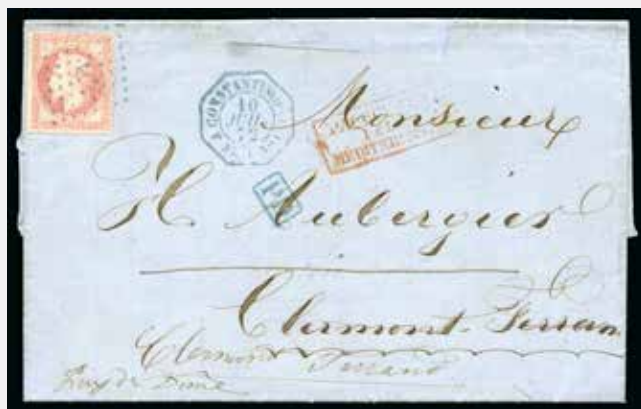 CONSTANTINOP
10
Monsieur
MEDITER
PD
H. Aubergier
Clermont-Ferran
Clermont Ferrand
Puy de Dôme